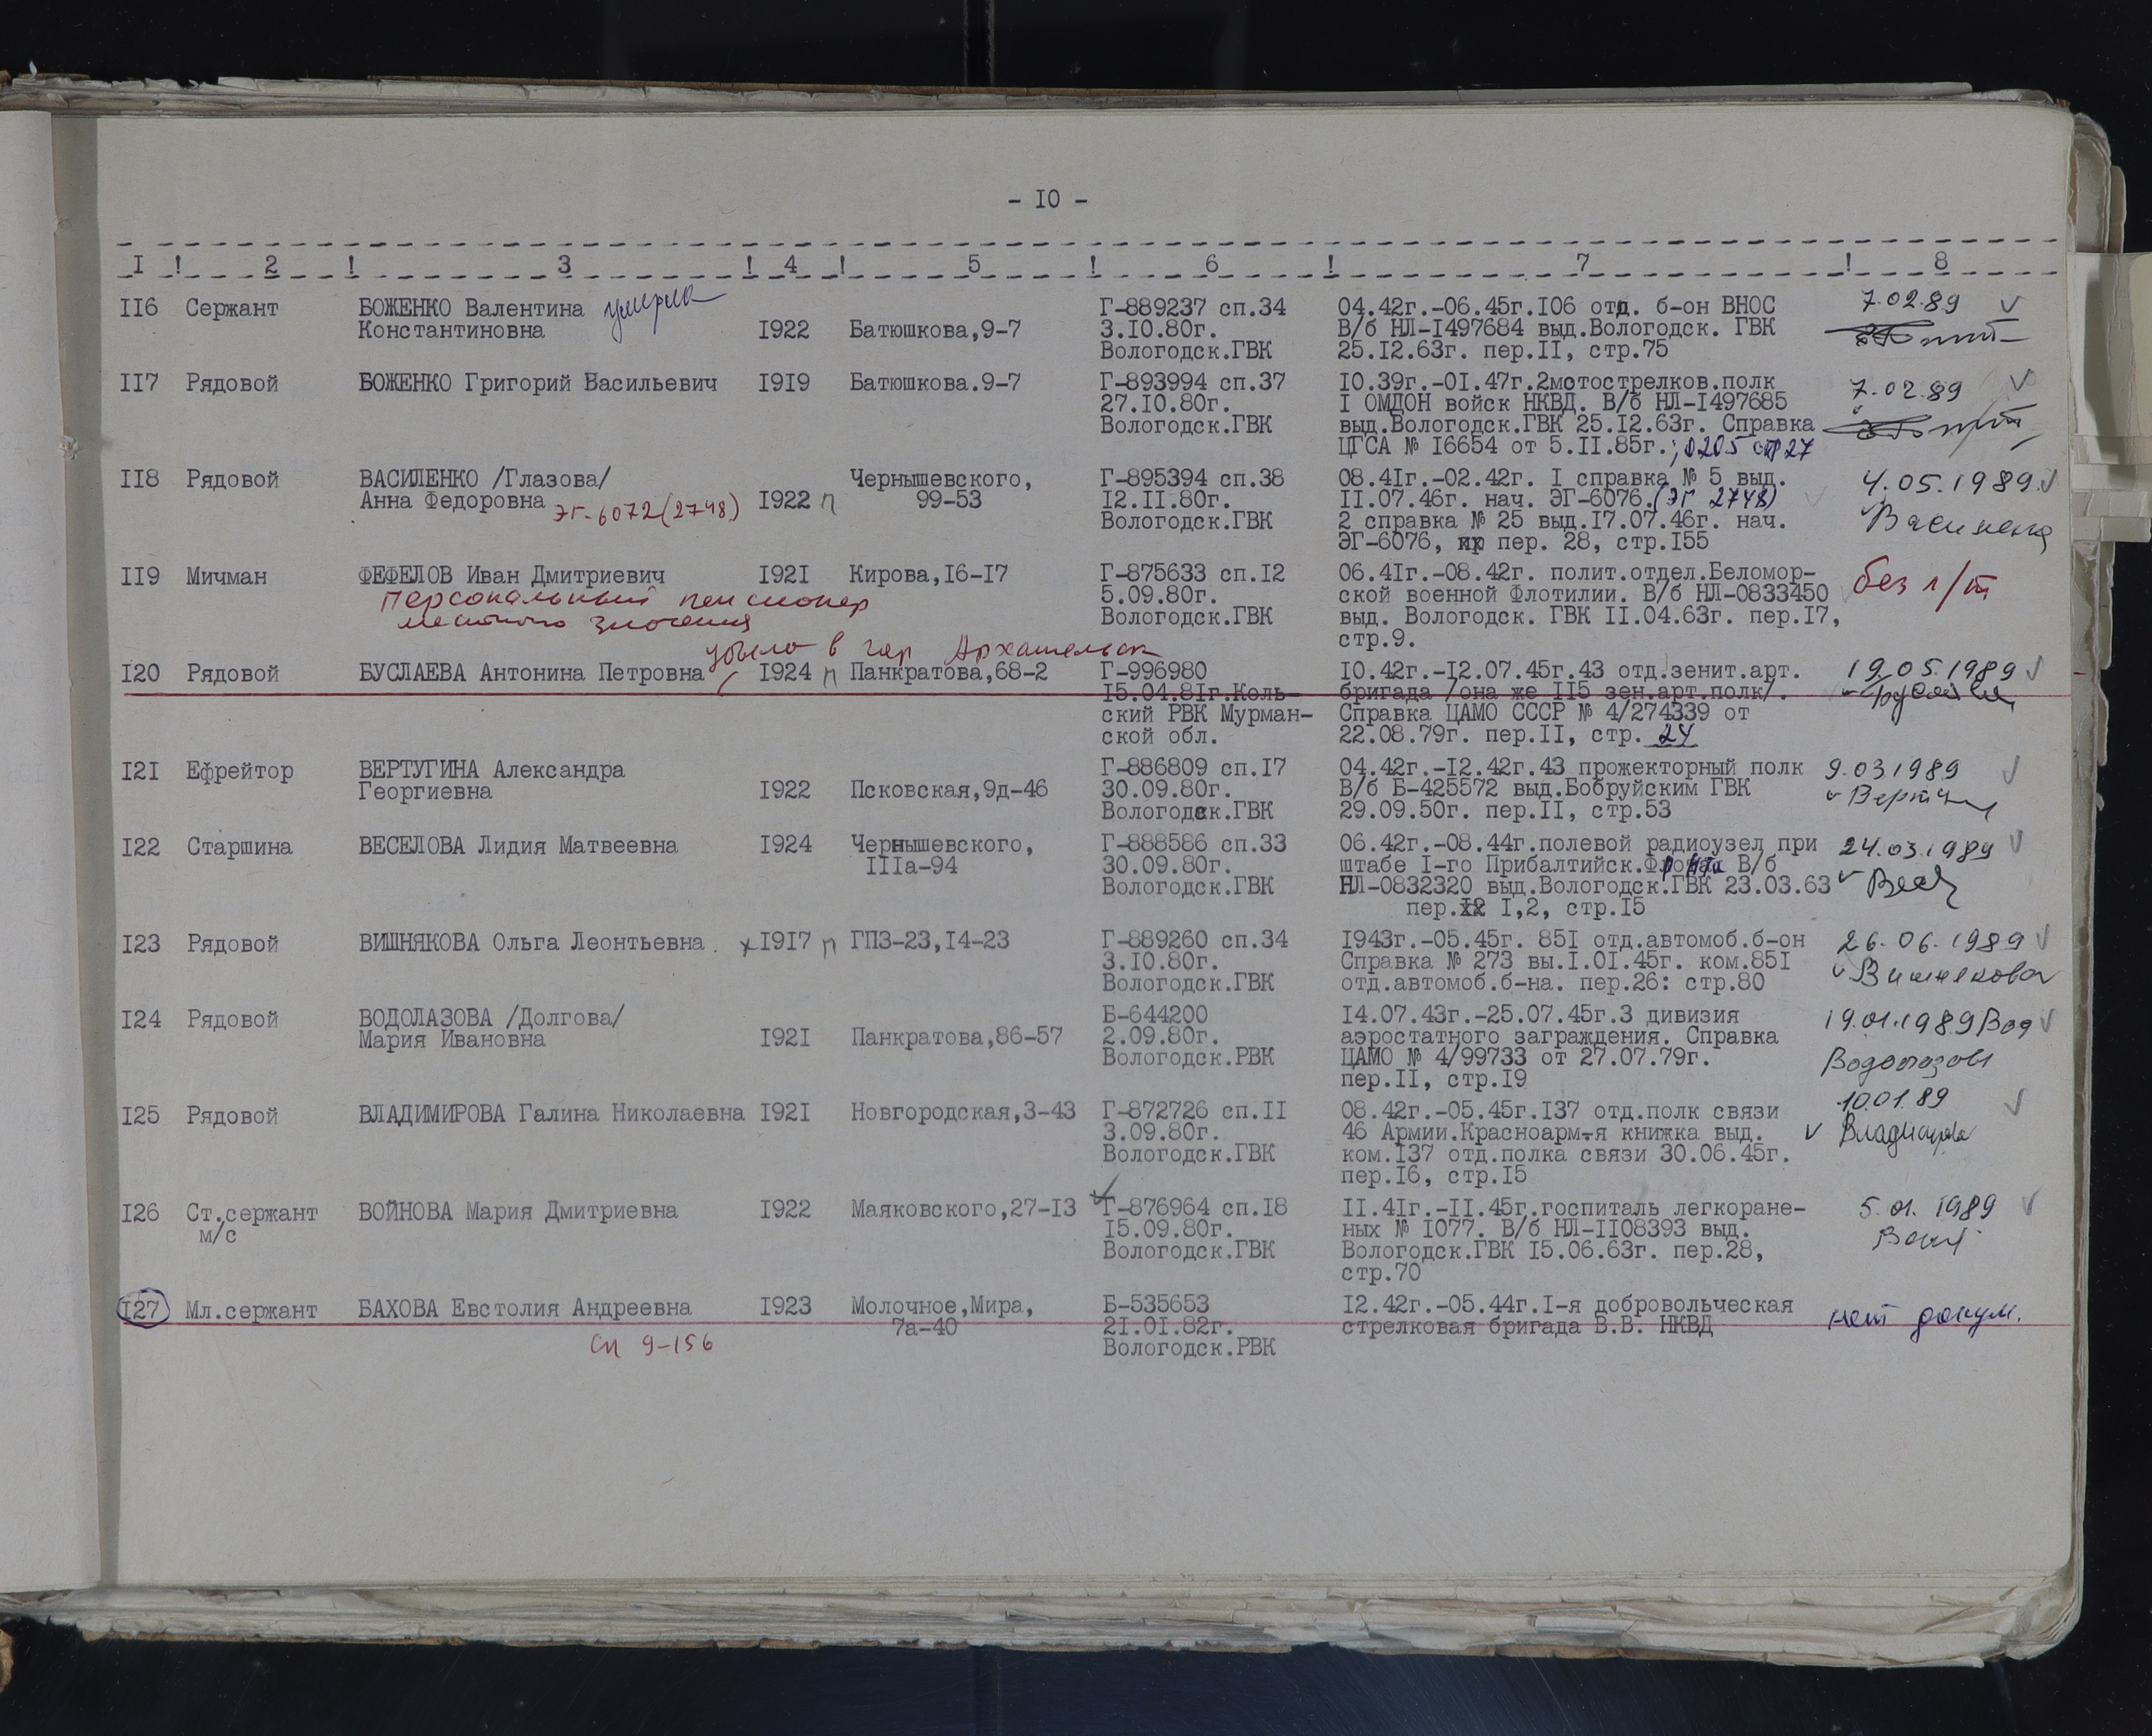 - I0 -
I ! 2 ! 3 ! 4 ! 5 ! 6 ! 7 ! 8
II6 Сержант БОЖЕНКО Валентина умерла Г-889237 сп.34 04.42г.-06.45г.I06 отд. б-он ВНОС 7.02.89
Константиновна I922 Батюшкова,9-7 3.I0.80г. В/б НЛ-I497684 выд.Вологодск. ГВК
Вологодск.ГВК 25.I2.63г. пер.II, стр.75
II7 Рядовой БОЖЕНКО Григорий Васильевич I9I9 Батюшкова.9-7 Г-893994 сп.37 I0.39г.-0I.47г.2мотострелков.полк 7.02.89
27.I0.80г. I ОМДОН войск НКВД. В/б НЛ-I497685
Вологодск.ГВК выд.Вологодск.ГВК 25.I2.63г. Справка
ЦГСА № I6654 от 5.II.85г.; д205 стр27
II8 Рядовой ВАСИЛЕНКО /Глазова/ Чернышевского, Г-895394 сп.38 08.4Iг.-02.42г. I справка № 5 выд. 4.05.1989.
Анна Федоровна ЭГ-6072(2748) I922 п 99-53 I2.II.80г. II.07.46г. нач. ЭГ-6076.(ЭГ 2748) Василенко
Вологодск.ГВК 2 справка № 25 выд.I7.07.46г. нач.
ЭГ-6076, пер. 28, стр.I55
II9 Мичман ФЕФЕЛОВ Иван Дмитриевич I92I Кирова,I6-I7 Г-875633 сп.I2 06.4Iг.-08.42г. полит.отдел.Беломор- без л/т
персональный пенсионер 5.09.80г. ской военной Флотилии. В/б НЛ-0833450
местного значения Вологодск.ГВК выд. Вологодск. ГВК II.04.63г. пер.I7,
стр.9.
убыла в гор Архангельск
I20 Рядовой БУСЛАЕВА Антонина Петровна I924 п Панкратова,68-2 Г-996980 I0.42г.-I2.07.45г.43 отд.зенит.арт. 19.05.1989
I5.04.8Iг.Коль- бригада /она же II5 зен.арт.полк/.
ский РВК Мурман- Справка ЦАМО СССР № 4/274339 от
ской обл. 22.08.79г. пер.II, стр. 24
I2I Ефрейтор ВЕРТУГИНА Александра Г-886809 сп.I7 04.42г.-I2.42г.43 прожекторный полк 9.03.1989
Георгиевна I922 Псковская,9д-46 30.09.80г. В/б Б-425572 выд.Бобруйским ГВК
Вологодск.ГВК 29.09.50г. пер.II, стр.53
I22 Старшина ВЕСЕЛОВА Лидия Матвеевна I924 Чернышевского, Г-888586 сп.33 06.42г.-08.44г.полевой радиоузел при 24.03.1989
IIIа-94 30.09.80г. штабе I-го Прибалтийск.Фронта В/б
Вологодск.ГВК НЛ-0832320 выд.Вологодск.ГВК 23.03.63
пер. I,2, стр.I5
I23 Рядовой ВИШНЯКОВА Ольга Леонтьевна I9I7 п ГПЗ-23,I4-23 Г-889260 сп.34 I943г.-05.45г. 85I отд.автомоб.б-он 26.06.1989
3.I0.80г. Справка № 273 вы.I.0I.45г. ком.85I Вишнякова
Вологодск.ГВК отд.автомоб.б-на. пер.26: стр.80
I24 Рядовой ВОДОЛАЗОВА /Долгова/ Б-644200 I4.07.43г.-25.07.45г.3 дивизия 19.01.1989 Вод
Мария Ивановна I92I Панкратова,86-57 2.09.80г. аэростатного заграждения. Справка
Вологодск.РВК ЦАМО № 4/99733 от 27.07.79г. Водолазова
пер.II, стр.I9
I25 Рядовой ВЛАДИМИРОВА Галина Николаевна I92I Новгородская,3-43 Г-872726 сп.II 08.42г.-05.45г.I37 отд.полк связи 10.01.89
3.09.80г. 46 Армии.Красноарм-я книжка выд. Владимирова
Вологодск.ГВК ком.I37 отд.полка связи 30.06.45г.
пер.I6, стр.I5
I26 Ст.сержант ВОЙНОВА Мария Дмитриевна I922 Маяковского,27-I3 Г-876964 сп.I8 II.4Iг.-II.45г.госпиталь легкоране- 5.01.1989
м/с I5.09.80г. ных № I077. В/б НЛ-II08393 выд.
Вологодск.ГВК Вологодск.ГВК I5.06.63г. пер.28,
стр.70
I27 Мл.сержант БАХОВА Евстолия Андреевна I923 Молочное,Мира, Б-535653 I2.42г.-05.44г.I-я добровольческая нет докум.
7а-40 2I.0I.82г. стрелковая бригада В.В. НКВД
сп 9-156 Вологодск.РВК